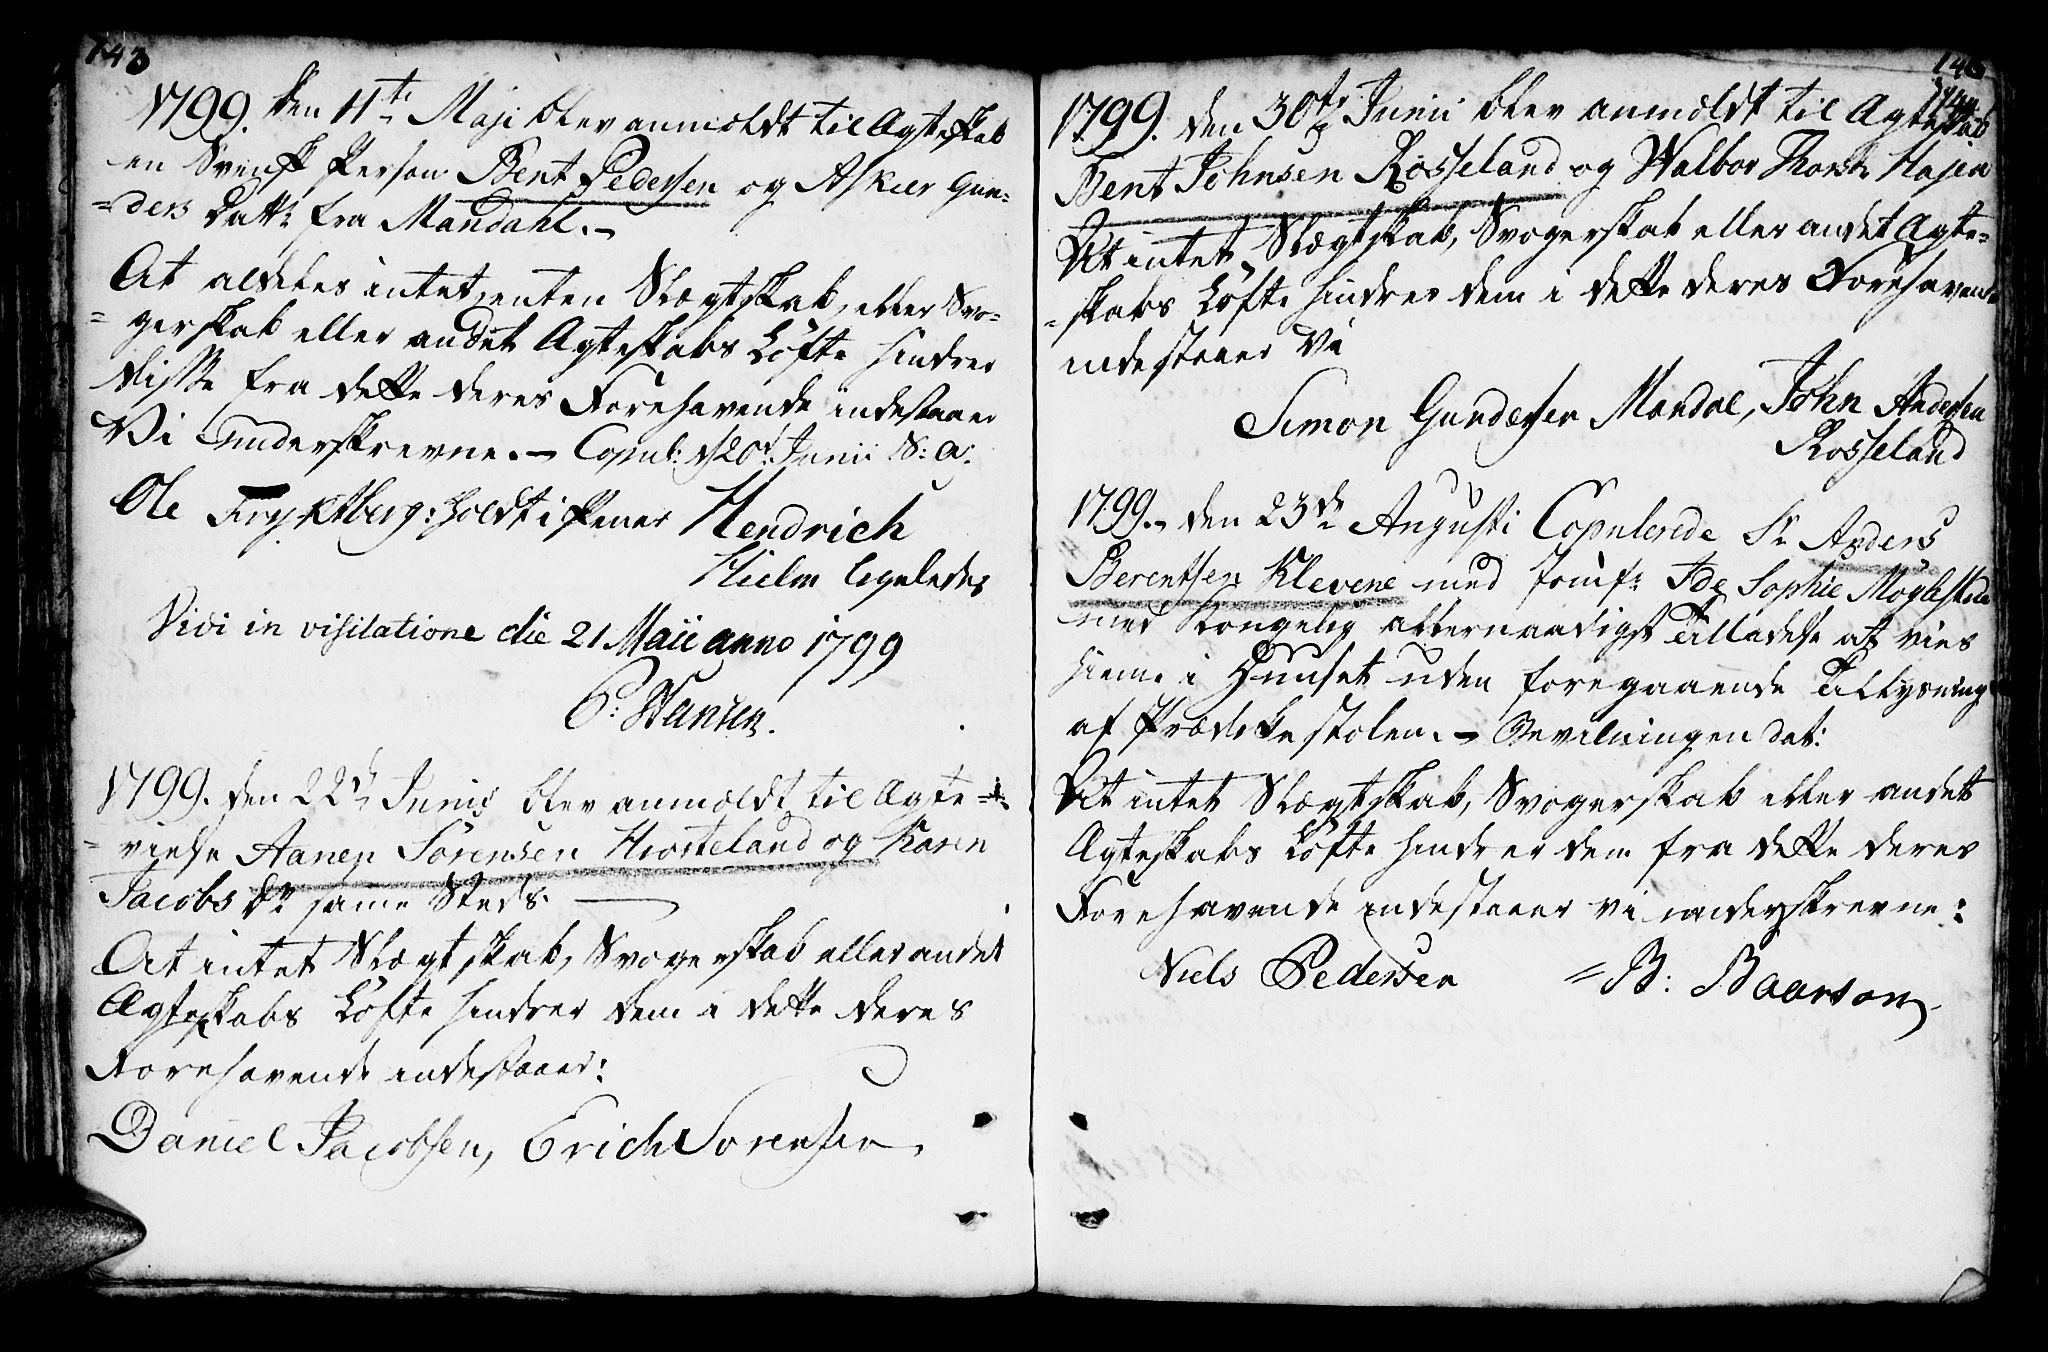 143
1799. den 11te Maji blev anmeldt til Agteskab
en Svensk Person Bent Pedersen og Asker Gun-
=ders Datt: fra Mandahl. –
At aldeles intet, enten Slægtskab, eller Svo-
=gerskab eller andet Agteskabs Løfte hindrer
disse fra dette deres Forehavende indestaaer
Vi underskrevne. – Copul: d 20t Junii S: a:
Ole holdt i Penner Hendrich
Hielm ligeledes
Vivi in visitatione die 21 Maii anno 1799
P: Hansen.
1799. den 22d Junii blev anmældt til Agte=
=vielse Aanen Sörensen Hrosteland og Karen
Jacobs Dr samme Steds.
At intet Slægtskab, Svogerskab eller andet
Agteskabs Løfte hindrer dem i dette deres
Forehavende indestaaer:
Daniel Jacobsen, Erich Sorensen.
146
144
1799. den 30te Junii blev anmeldt til Agteskab
Bent Johnsen Rosseland og Walbor Thorsdr Hajen
At intet Slægtskab, Svogerskab eller andet Agte=
=skabs Løfte hindrer dem i dette deres Forehavende
indestaaer Vi
Simon Gundersen Mandal, John Andersen
Rosseland
1799. – den 23de Augusti Copulerede Sr Anders
Berentsen Klevene med Jomfr: Ide Sophie Møglestue
med Kongelig allernaadigst Tilladelse at vies
hiemme i Huuset uden foregaaende Tillysning
af Prædikestolen. – Bevilningen dat:
At intet Slægtskab, Svogerskab eller andet
Agteskabs Løfte hindrer dem fra dette deres
Forehavende indestaaer vi underskrevne:
Niels Pedersen = B: Baarson